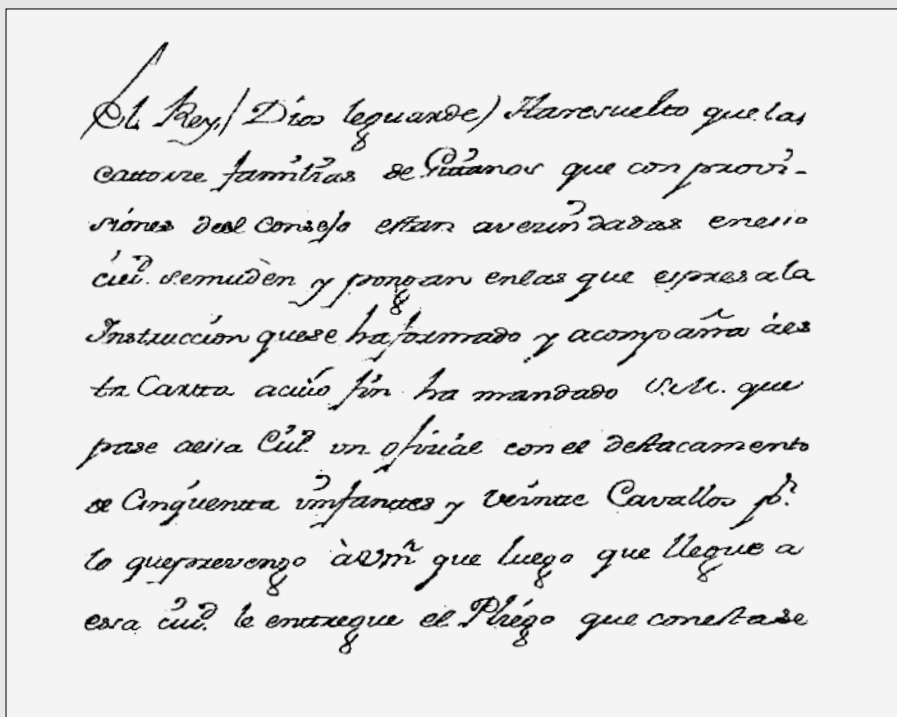 El Rey (Dios leguarde) Harresuelto que las
Catorze familias de Gitanos que con provi-
siones deel Consejo estan avezindadas enesa
ciud. semuden y pongan enlas que espresa la
Instruccion quese ha formado y acompaña aes
ta Carta acuio fin ha mandado S.M. que
pase aesa Ciud. vn ofizial con el destacamento
de Cinquenta ynfantes y veinte Cavallos pr.
lo queprevengo àVm que luego que llegue a
esa ciud. le entregue el Pliego que conesta se